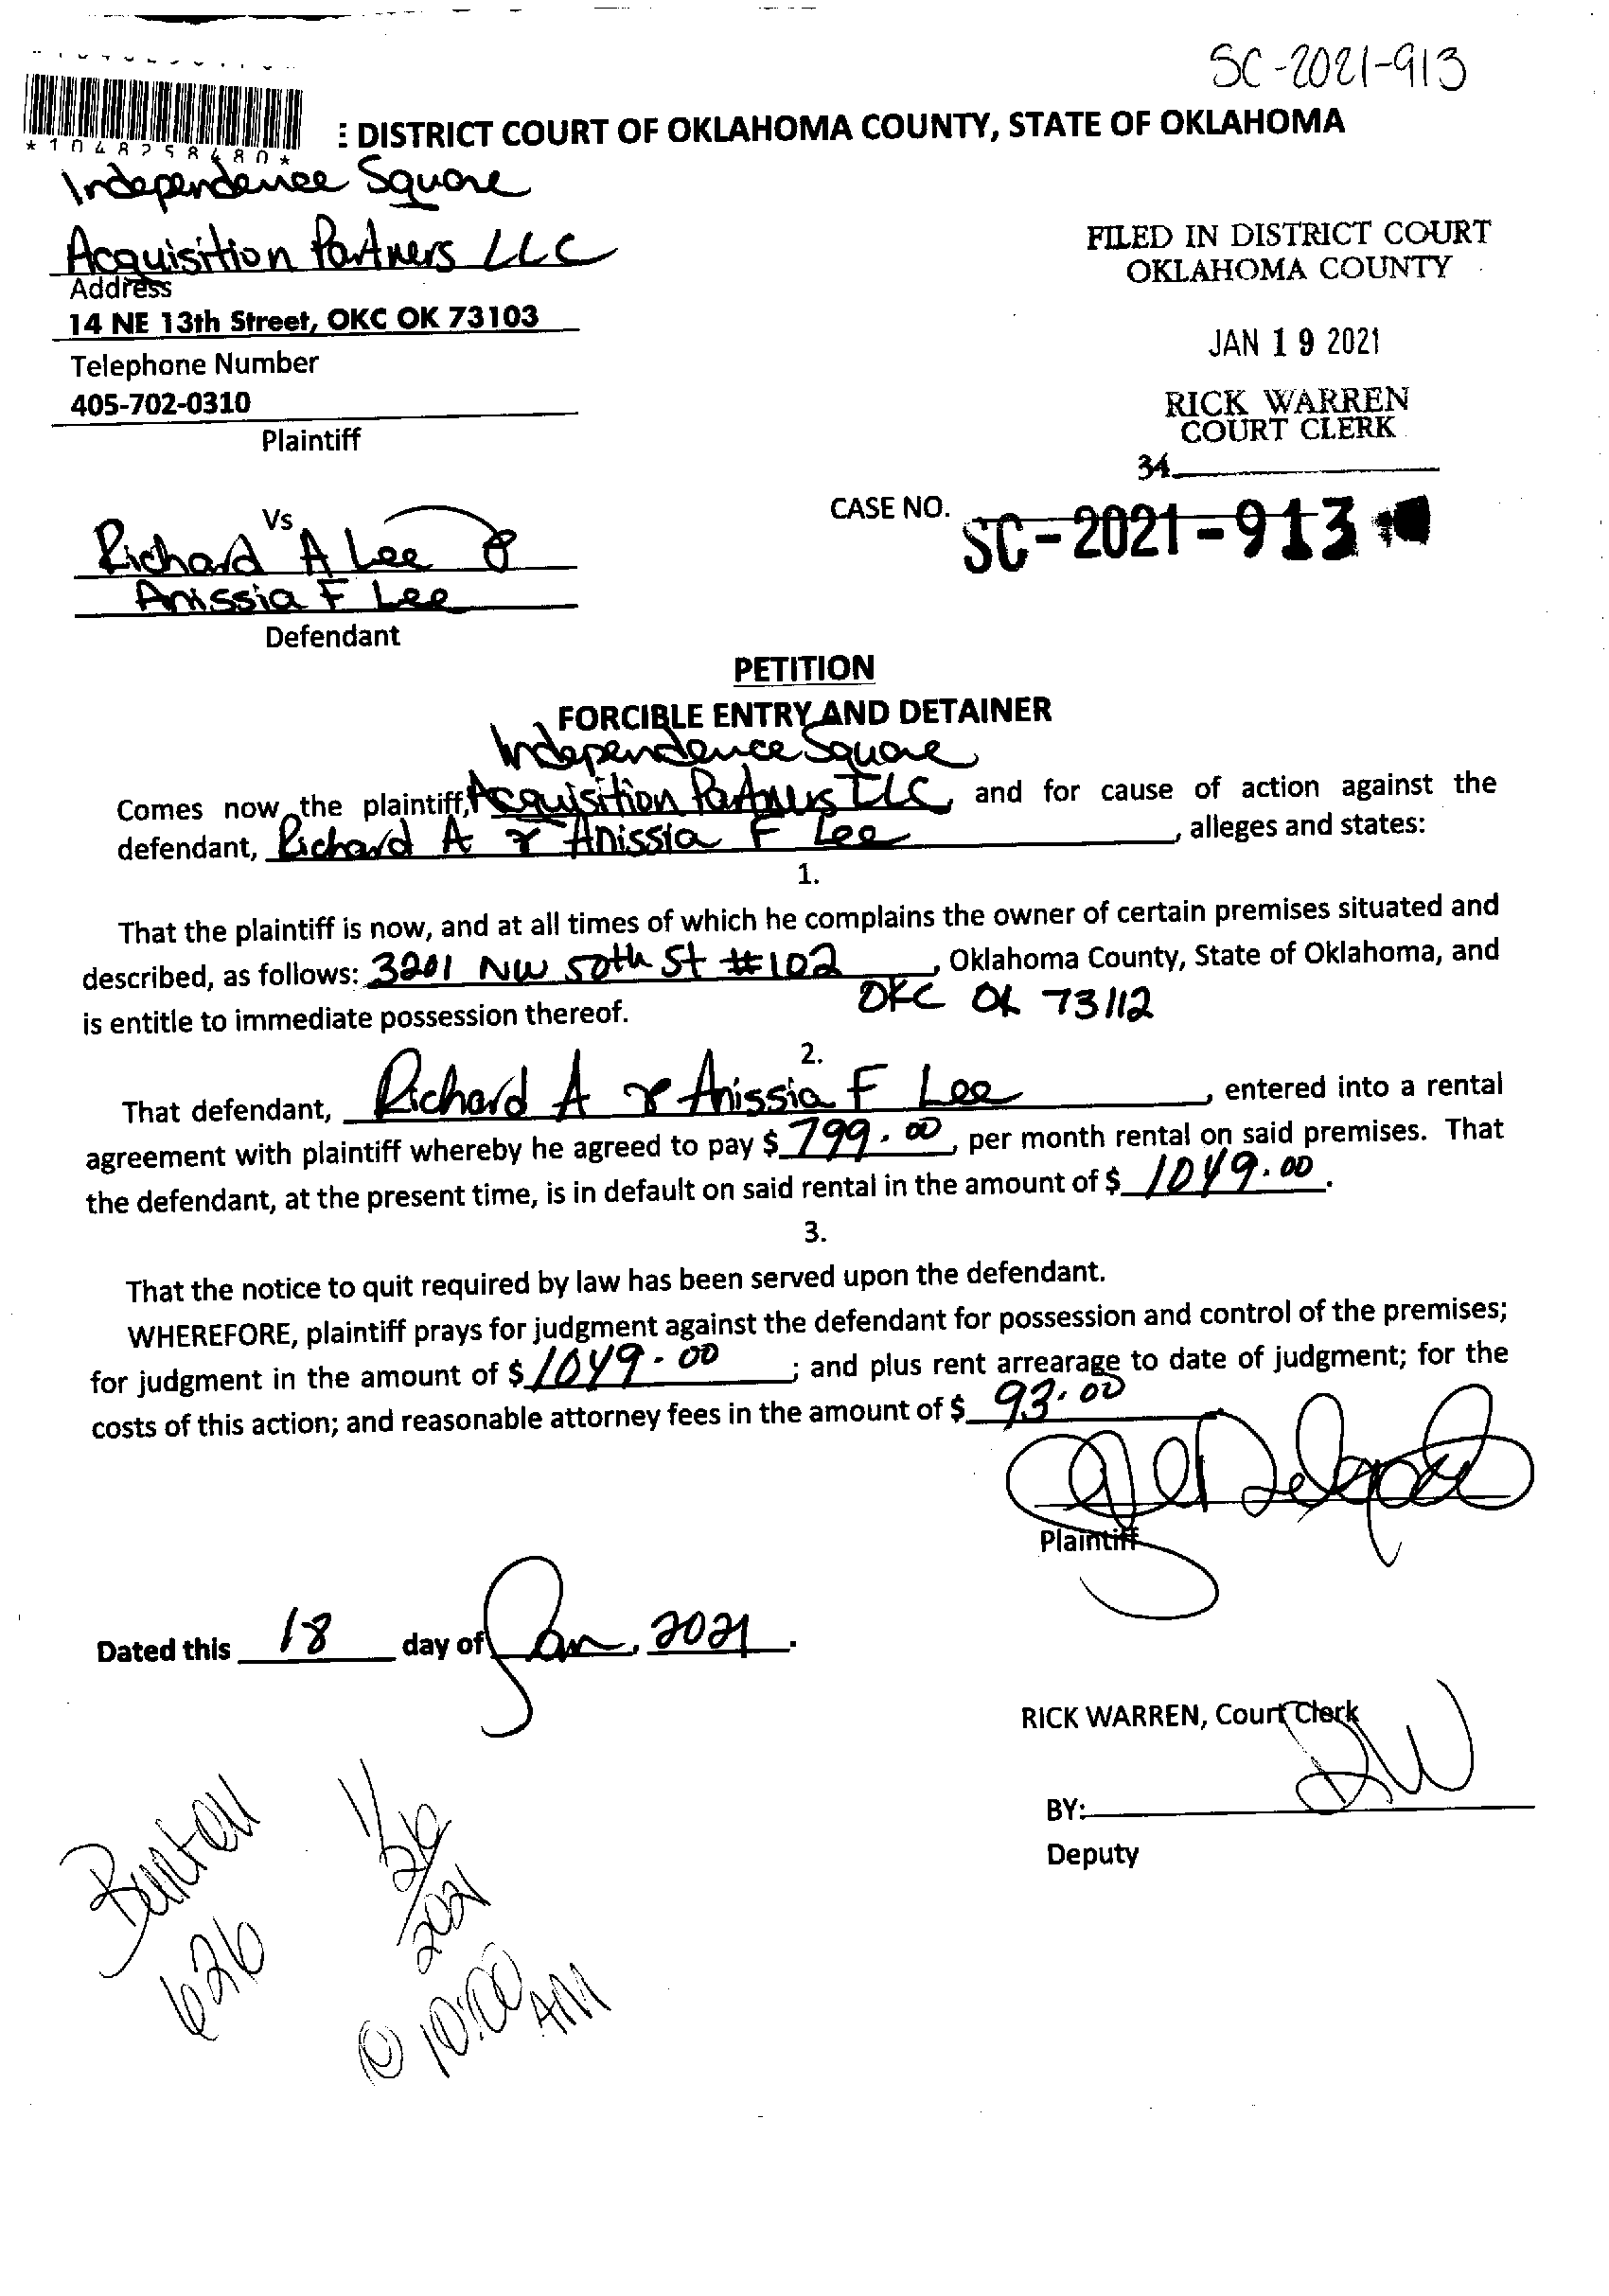 SC-2021-913
*1048258480*
: DISTRICT COURT OF OKLAHOMA COUNTY, STATE OF OKLAHOMA
Independence Square
Acquisition Partners LLC
Address
14 NE 13th Street, OKC OK 73103
Telephone Number
405-702-0310
Plaintiff
FILED IN DISTRICT COURT
OKLAHOMA COUNTY
JAN 19 2021
RICK WARREN
COURT CLERK
34
Vs
Richard A Lee &
Anissia F Lee
Defendant
CASE NO. SC-2021-913
PETITION
FORCIBLE ENTRY AND DETAINER
Independence Square
Comes now the plaintiff, Acquisition Partners LLC, and for cause of action against the
defendant, Richard A & Anissia F Lee, alleges and states:
1.
That the plaintiff is now, and at all times of which he complains the owner of certain premises situated and
described, as follows: 3201 NW 50th St #102, Oklahoma County, State of Oklahoma, and
OKC OK 73112
is entitle to immediate possession thereof.
2.
That defendant, Richard A & Anissia F Lee, entered into a rental
agreement with plaintiff whereby he agreed to pay $ 799.00, per month rental on said premises. That
the defendant, at the present time, is in default on said rental in the amount of $ 1049.00.
3.
That the notice to quit required by law has been served upon the defendant.
WHEREFORE, plaintiff prays for judgment against the defendant for possession and control of the premises;
for judgment in the amount of $ 1049.00; and plus rent arrearage to date of judgment; for the
costs of this action; and reasonable attorney fees in the amount of $ 93.00
Plaintiff
Dated this 18 day of Jan, 2021.
RICK WARREN, Court Clerk
BY: RW
Deputy
626
1/26/2021
@ 10:00 AM